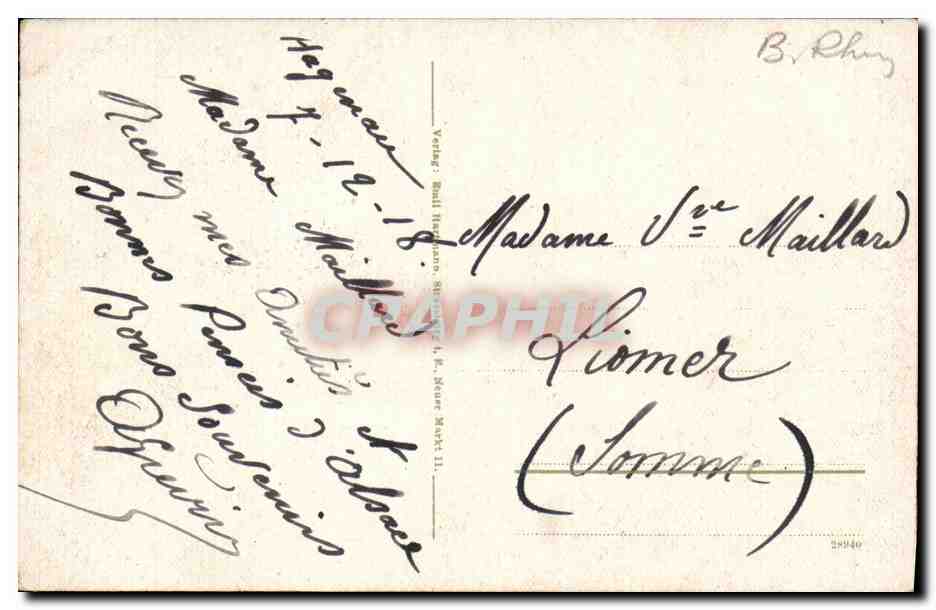 B. Rhin
Hagenau
7-12-18.
Madame Maillard
Recevez mes Amitiés et
Bonnes Pensées d'Alsace
Bons Souvenirs
Verlag: Emil Hartmann, Strassburg i. E., Neuer Markt 11.
Madame Vve Maillard
Liomer
(Somme)
28940
CRAPHIL